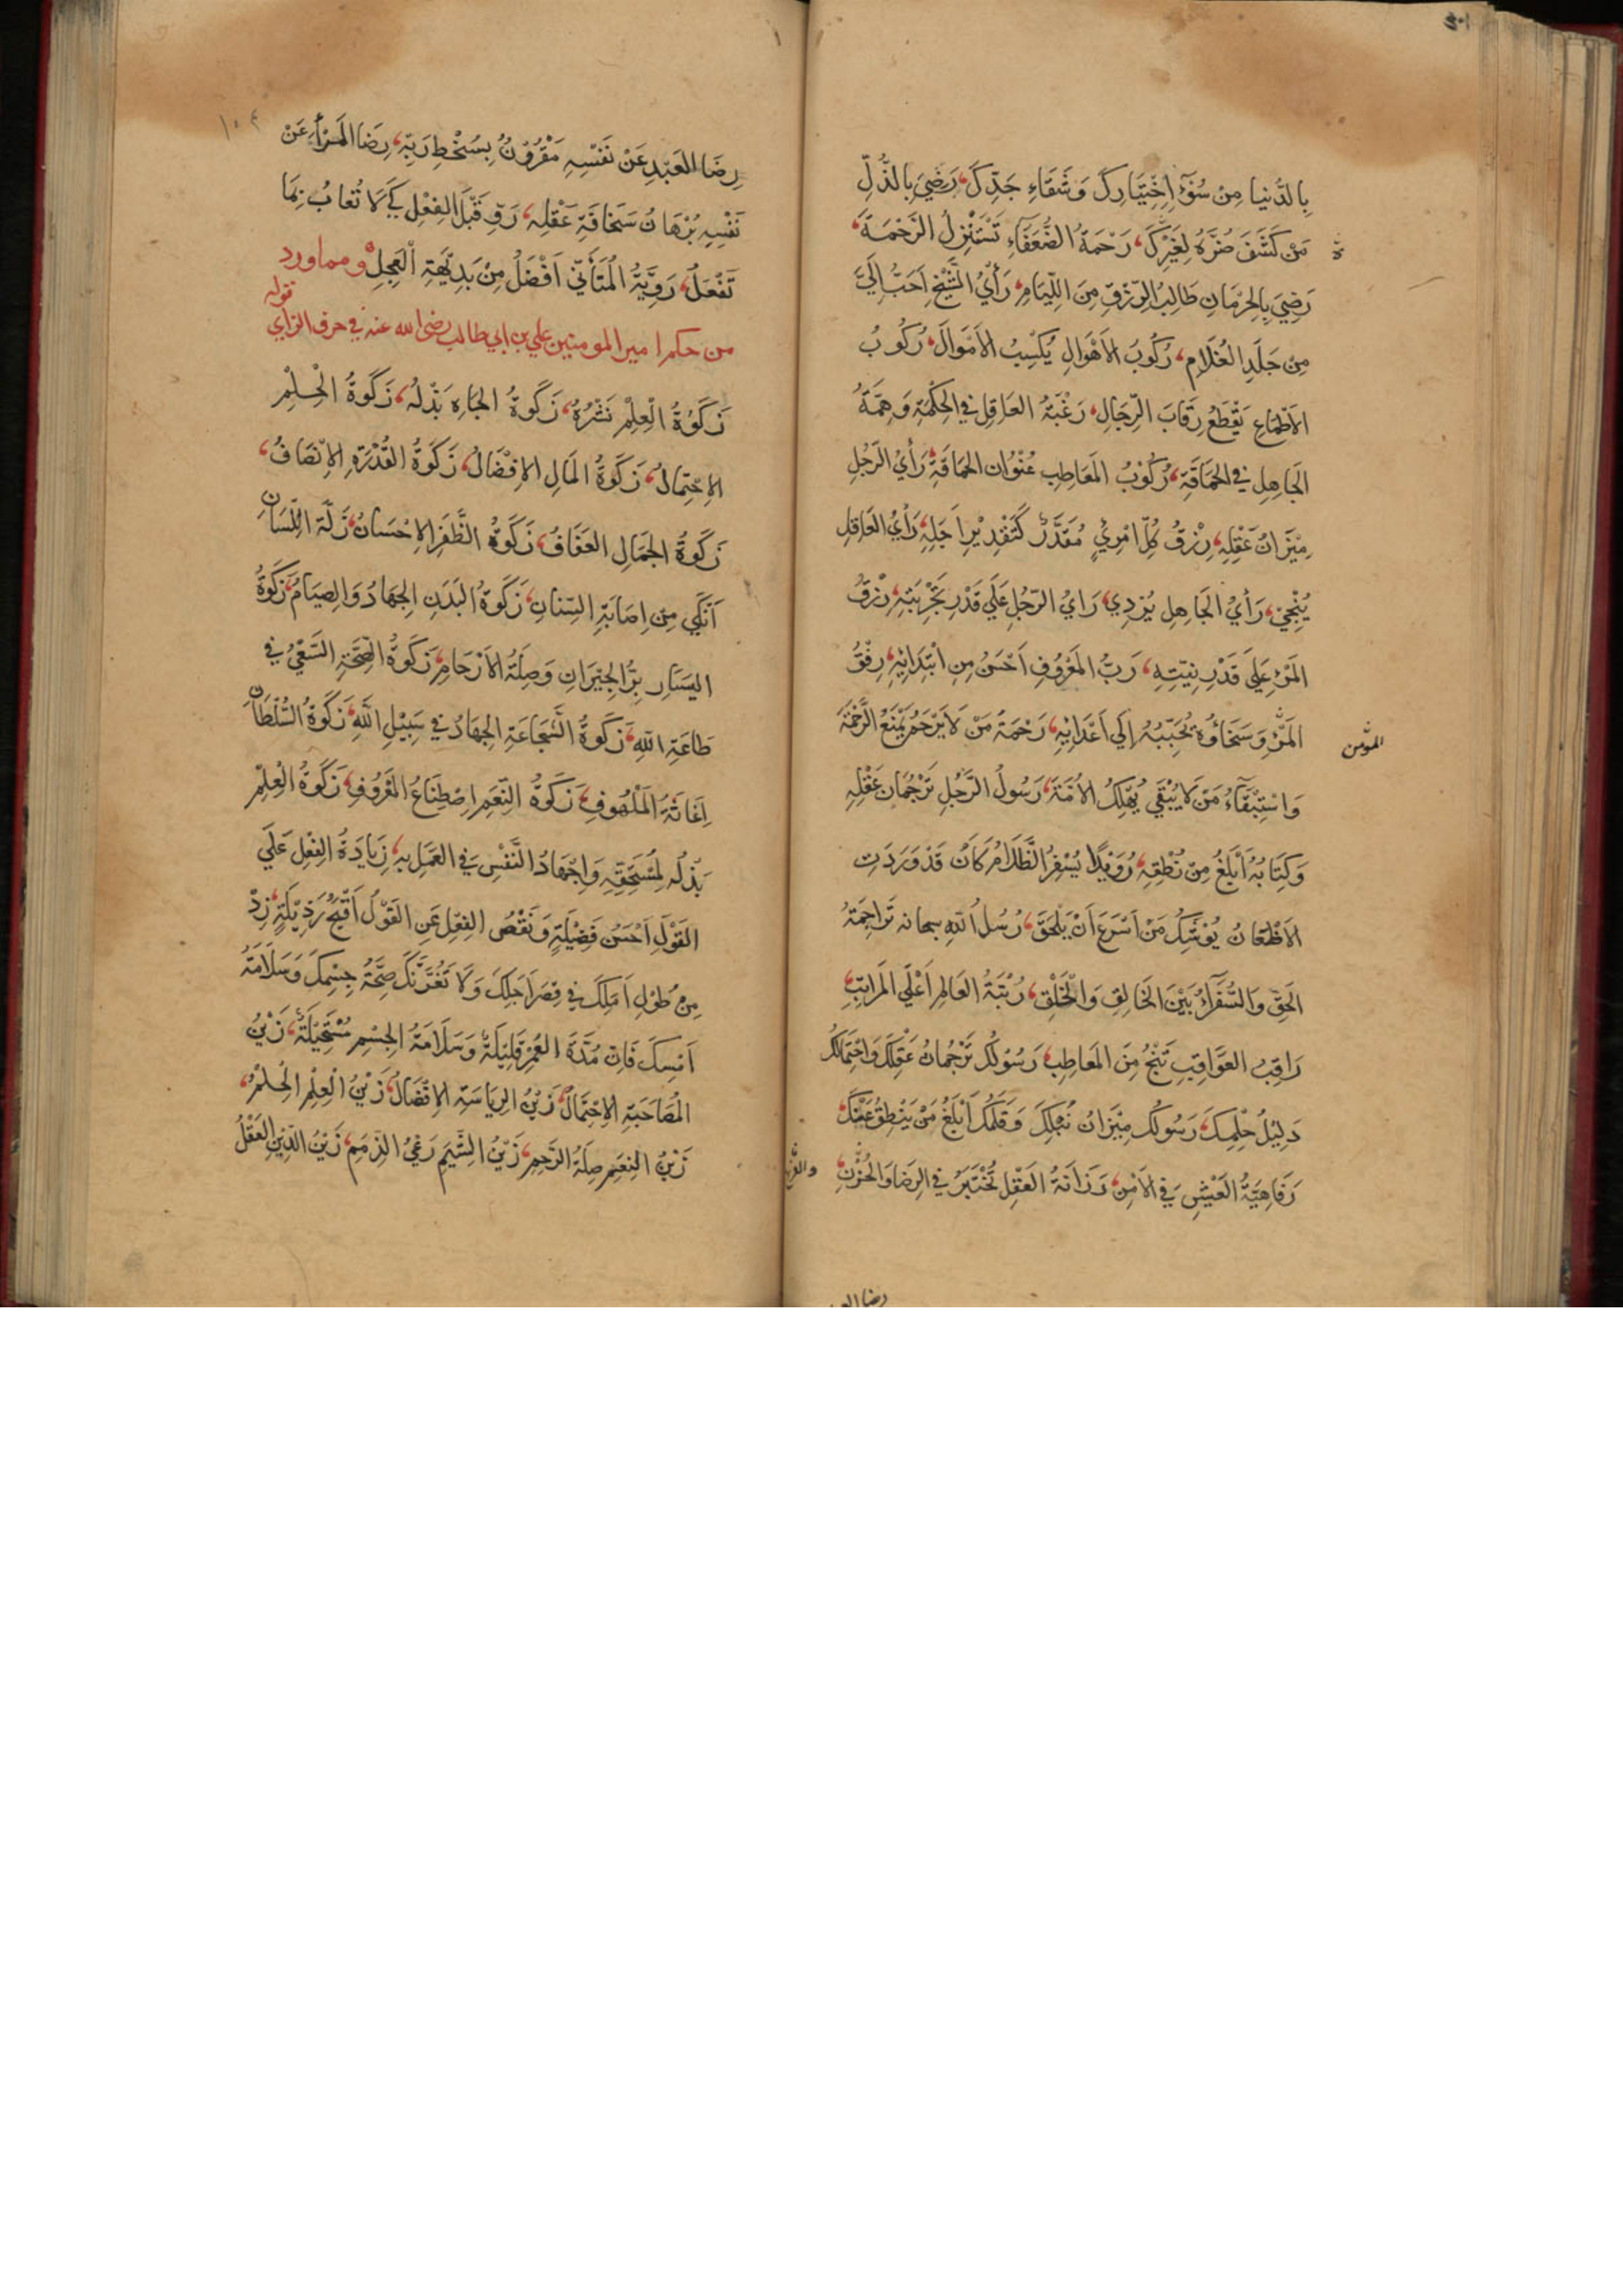 بِالدُّنيا مِنْ سُوْءِ اِخْتِيَارِكَ وَشَقَاءِ جَدِّكَ، رَضِيَ بِالذُّلِّ
مَنْ كَشَفَ ضُرَّهُ لِغَيْرِكَ، رَحْمَةُ الضُّعَفَاءِ تَسْتَنْزِلُ الرَّحْمَةَ،
رَضِيَ بِالحِرْمَانِ طَالِبُ الرِّزْقِ مِنَ اللِّيَامِ، رَأْيُ الشَّيْخِ اَحَبُّ اِلَيَّ
مِنْ جَلَدِ الغُلَامِ، رُكُوبُ الأَهْوَالِ يُكْسِبُ الأَمْوَالَ، رُكُوبُ
الأَطْمَاعِ يَقْطَعُ رِقَابَ الرِّجَالِ، رَغْبَةُ العَاقِلِ فِي الحِكْمَةِ وَهِمَّةُ
الجَاهِلِ فِي الحَمَاقَةِ، رُكُوْبُ المَعَاطِبِ عُنْوَانُ الحَمَاقَةِ، رَأْيُ الرَّجُلِ
مِيْزَانُ عَقْلِهِ، رِزْقُ كُلِّ امْرِئٍ مُقَدَّرٌ كَتَقْدِيْرِ اَجَلِهِ، رَأْيُ العَاقِلِ
يُنْجِيْ، رَأْيُ الجَاهِلِ يُرْدِي، رَايُ الرَّجُلِ عَلَي قَدْرِ تَجْرِبَتِهِ، رِزْقُ
المَرْءِ عَلَي قَدْرِ نِيَّتِهِ، رَبُّ المَعْرُوفِ اَحْسَنُ مِنِ ابْتِدَائِهِ، رِفْقُ
المَرْءِ وَسَخَاؤُهُ يُحَبِّبُهُ اِلَي اَعْدَائِهِ، رَحْمَةُ مَنْ لَا يَرْحَمُ يَمْنَعُ الرَّحْمَةَ
المؤمن
وَاسْتِبْقَاءُ مَنْ لَا يُبْقِي يُهْلِكُ الأُمَّةَ، رَسُولُ الرَّجُلِ تَرْجُمَانُ عَقْلِهِ
وَكِتَابُهُ أَبْلَغُ مِنْ نُطْقِهِ، رُوَيْدًا يُسْفِرُ الظَّلَامُ كَأَنْ قَدْ وَرَدَتِ
الاَظْعَانُ يُوْشِكُ مَنْ اَسْرَعَ اَنْ يَلْحَقَ، رُسُلُ اللهِ سبحانه تَرَاجِمَةُ
الحَقِّ وَالسُّفَرَاءُ بَيْنَ الخَالِقِ وَالْخَلْقِ، رُتْبَةُ العَالِمِ اَعْلَي المَرَاتِبِ،
رَاقِبِ العَوَاقِبَ تَنْجُ مِنَ المَعَاطِبِ، رَسُوْلُكَ تَرْجُمَانُ عَقْلِكَ وَاحْتِمَالُكَ
دَلِيْلُ حِلْمِكَ، رَسُولُكَ مِيْزَانُ نُبْلِكَ وَقَلَمُكَ اَبْلَغُ مَنْ يَنْطِقُ عَنْكَ،
رَفَاهِيَّةُ العَيْشِ فِي الاَمْنِ، رَزَانَةُ العَقْلِ تُخْتَبَرُ فِي الرِّضَا وَالحُزْنِ،
رضا العبد
رِضَا العَبْدِ عَنْ نَفْسِهِ مَقْرُوْنٌ بِسَخَطِ رَبِّهِ، رِضَا المَرْأِ عَنْ
نَفْسِهِ بُرْهَانُ سَخَافَةِ عَقْلِهِ، رَوِّ قَبْلَ الفِعْلِ كَيْ لَا تُعَابَ بِمَا
تَفْعَلُ، رَوِيَّةُ المُتَأَنِّي اَفْضَلُ مِنْ بَدِيْهَةِ الْعَجِلِ، ومما ورد
من حكم امير المومنين علي بن ابي طالب رضي الله عنه في حرف الزاي قوله
زَكَوةُ الْعِلْمِ نَشْرُهُ، زَكَوةُ الجَاهِ بَذْلُهُ، زَكَوةُ الْحِلْمِ
الاِحْتِمَالُ، زَكَوةُ المَالِ الاِفْضَالُ، زَكَوةُ القُدْرَةِ الاِنْصَافُ،
زَكَوةُ الجَمَالِ العَفَافُ، زَكَوةُ الظَّفَرِ الاِحْسَانُ، زَلَّةُ اللِّسَانِ
اَنْكَي مِنْ اِصَابَةِ السِّنَانِ، زَكَوةُ البَدَنِ الجِهَادُ وَالصِيَامُ، زَكَوةُ
اليَسَارِ بِرُّ الجِيْرَانِ وَصِلَةُ الاَرْحَامِ، زَكَوةُ الصِّحَّةِ السَّعْيُ فِي
طَاعَةِ اللهِ، زَكَوةُ الشَّجَاعَةِ الجِهَادُ فِي سَبِيْلِ اللهِ، زَكَوةُ السُّلْطَانِ
اِغَاثَةُ المَلْهُوفِ، زَكَوةُ النِّعَمِ اِصْطِنَاعُ المَعْرُوفِ، زَكَوةُ الْعِلْمِ
بَذْلُهُ لِمُسْتَحِقِّهِ وَاجْهَادُ النَّفْسِ فِي العَمَلِ بِهِ، زِيَادَةُ الفِعْلِ عَلَي
القَوْلِ اَحْسَنُ فَضِيْلَةٍ وَنَقْصُ الفِعْلِ عَنِ القَوْلِ اَقْبَحُ رَذِيْلَةٍ، زِدْ
مِنْ طُوْلِ اَمَلِكَ فِي قِصَرِ اَجَلِكَ وَلَا تَغُرَّنَّكَ صِحَّةُ جِسْمِكَ وَسَلَامَةُ
اَمْسِكَ فَاِنَّ مُدَّةَ العُمْرِ قَلِيْلَةٌ وَسَلَامَةُ الجِسْمِ مُسْتَحِيْلَةٌ، زَيْنُ
المُصَاحَبَةِ الاِحْتِمَالُ، زَيْنُ الرِيَاسَةِ الاِفْضَالُ، زَيْنُ الْعِلْمِ الْحِلْمُ،
زَيْنُ النِعَمِ صِلَةُ الرَّحِمِ، زَيْنُ الشِّيَمِ رَعْيُ الذِّمَمِ، زَيْنُ الدِّيْنِ العَقْلُ